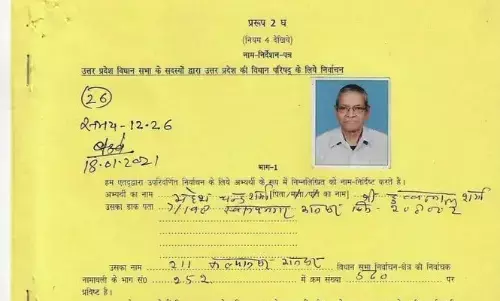 प्ररूप 2 घ
(नियम 4 देखिये)
नाम-निर्देशन-पत्र
उत्तर प्रदेश विधान सभा के सदस्यों द्वारा उत्तर प्रदेश की विधान परिषद् के लिये निर्वाचन
26
समय-12.26
18.01.2021
भाग-1
हम एतद्द्वारा उपरिवर्णित निर्वाचन के लिये अभ्यर्थी के रूप में निम्नलिखित को नाम-निर्दिष्ट करते हैं।
अभ्यर्थी का नाम महेश चन्द्र शर्मा पिता का नाम श्री शर्मा
उसका डाक पता
उसका नाम 211 विधान सभा निर्वाचन-क्षेत्र की निर्वाचक
नामावली के भाग सं0 252 में क्रम संख्या 560 पर
प्रविष्ट है।